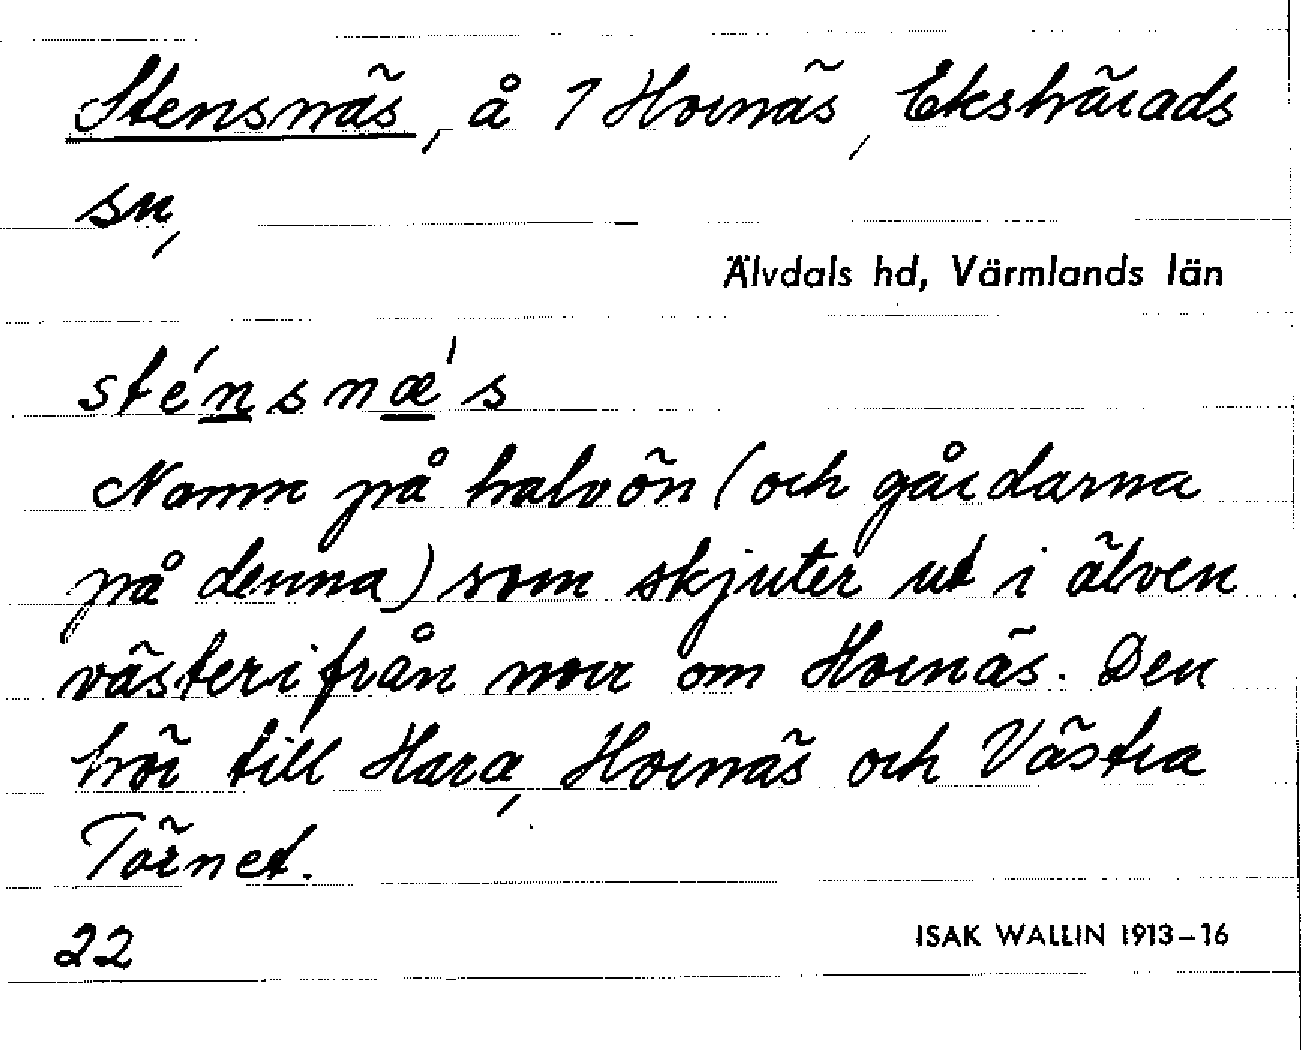 Stensnäs, å 1 Hornäs, Ekshärads
sn,
Älvdals hd, Värmlands län
sténsnæ's
Namn på halvön (och gårdarna
på denna) som skjuter ut i älven
västerifrån norr om Hornäs. Den
hör till Hara, Hornäs och Västra
Törnet.
22
ISAK WALLIN 1913–16